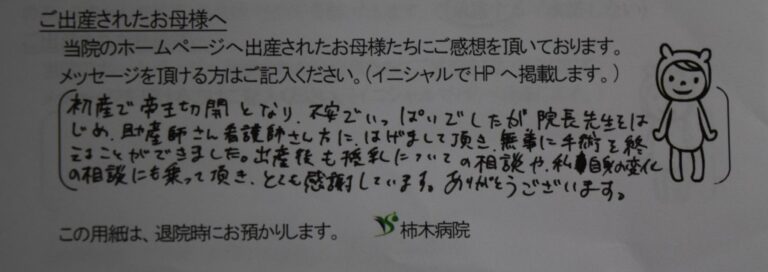 ご出産されたお母様へ
当院のホームページへ出産されたお母様たちにご感想を頂いております。
メッセージを頂ける方はご記入ください。(イニシャルでHPへ掲載します。)
初産で帝王切開となり、不安でいっぱいでしたが、院長先生をは
じめ、助産師さん看護師さん方に、はげまして頂き、無事に手術を終
えることができました。出産後も授乳についての相談や、私自身の変化
の相談にも乗って頂き、とても感謝しています。ありがとうございます。
この用紙は、退院時にお預かりします。
柿木病院